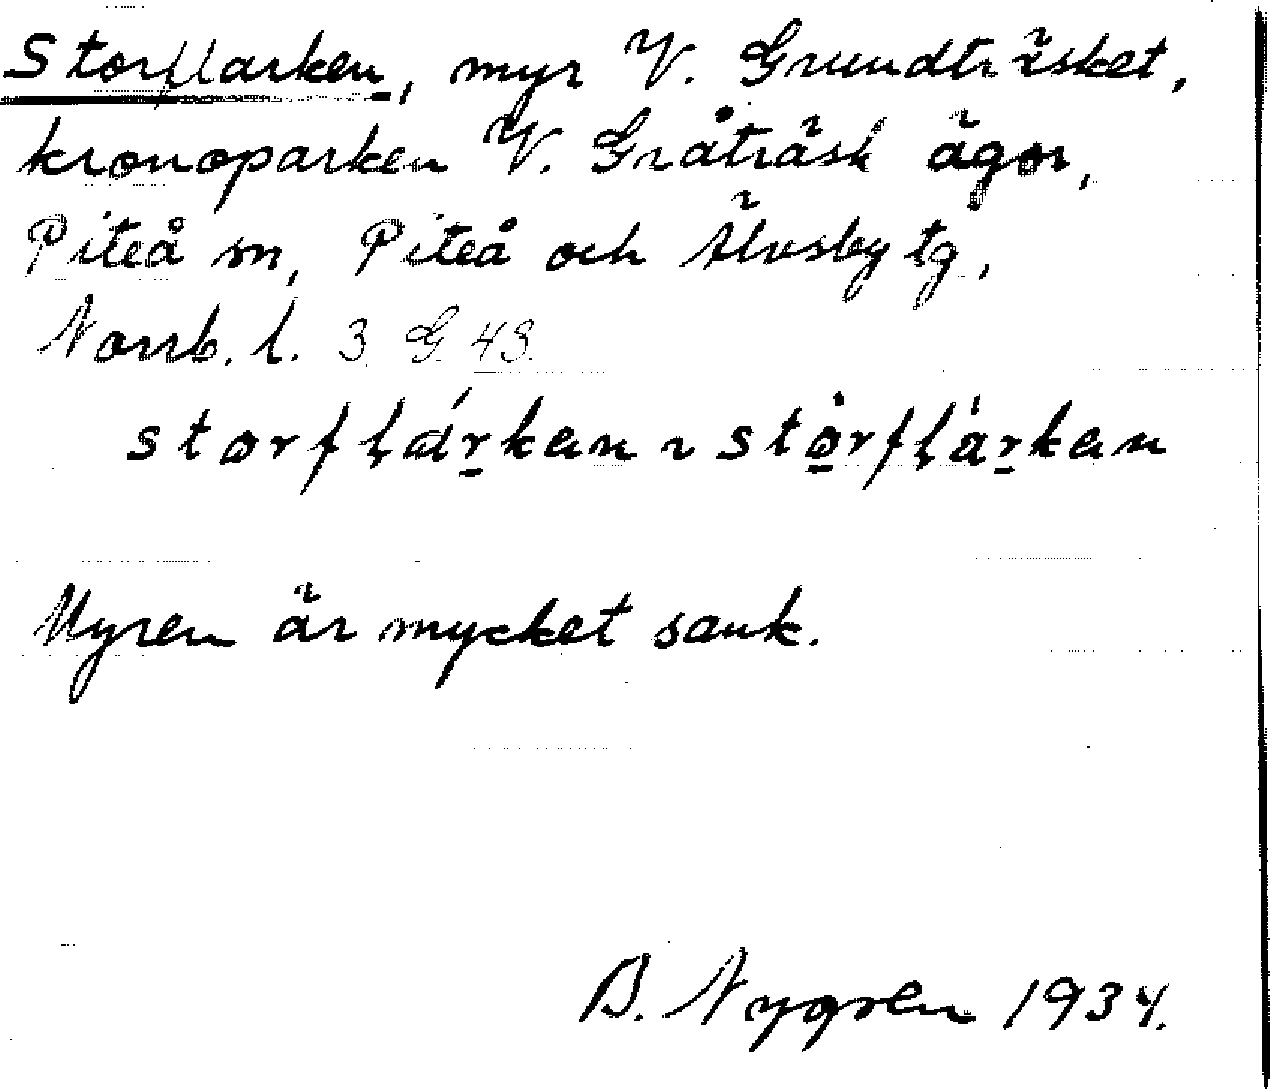 Storflarken, myr V. Grundträsket,
kronoparken V. Gråträsk ägor,
Piteå sn, Piteå och Älvsby tg,
Norrb. l. 3 G 43.
storflárkan ~ stòrflàrkan
Myren är mycket sank.
B. Nygren 1934.